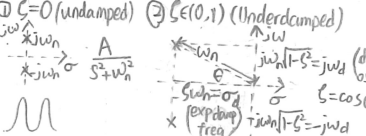 ① ζ=0 (undamped)
② ζ∈(0,1) (Underdamped)
jω
jωn
σ
-jωn
A
s²+ωn²
jω
ωn
θ
jωn√1-ζ²=jωd
ζωn=σd
σ
ζ=cos(
(exp damp
freq)
-jωn√1-ζ²=-jωd